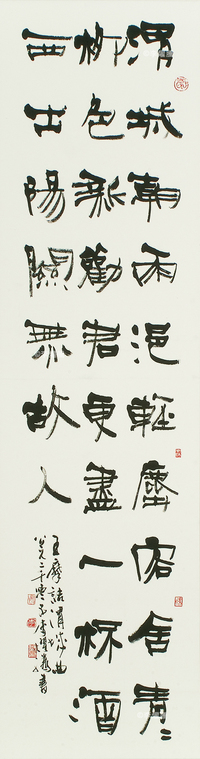 渭城朝雨浥輕塵客舍青〻
柳色新勸君更盡一杯酒
西出陽關無故人
王摩詰渭城曲